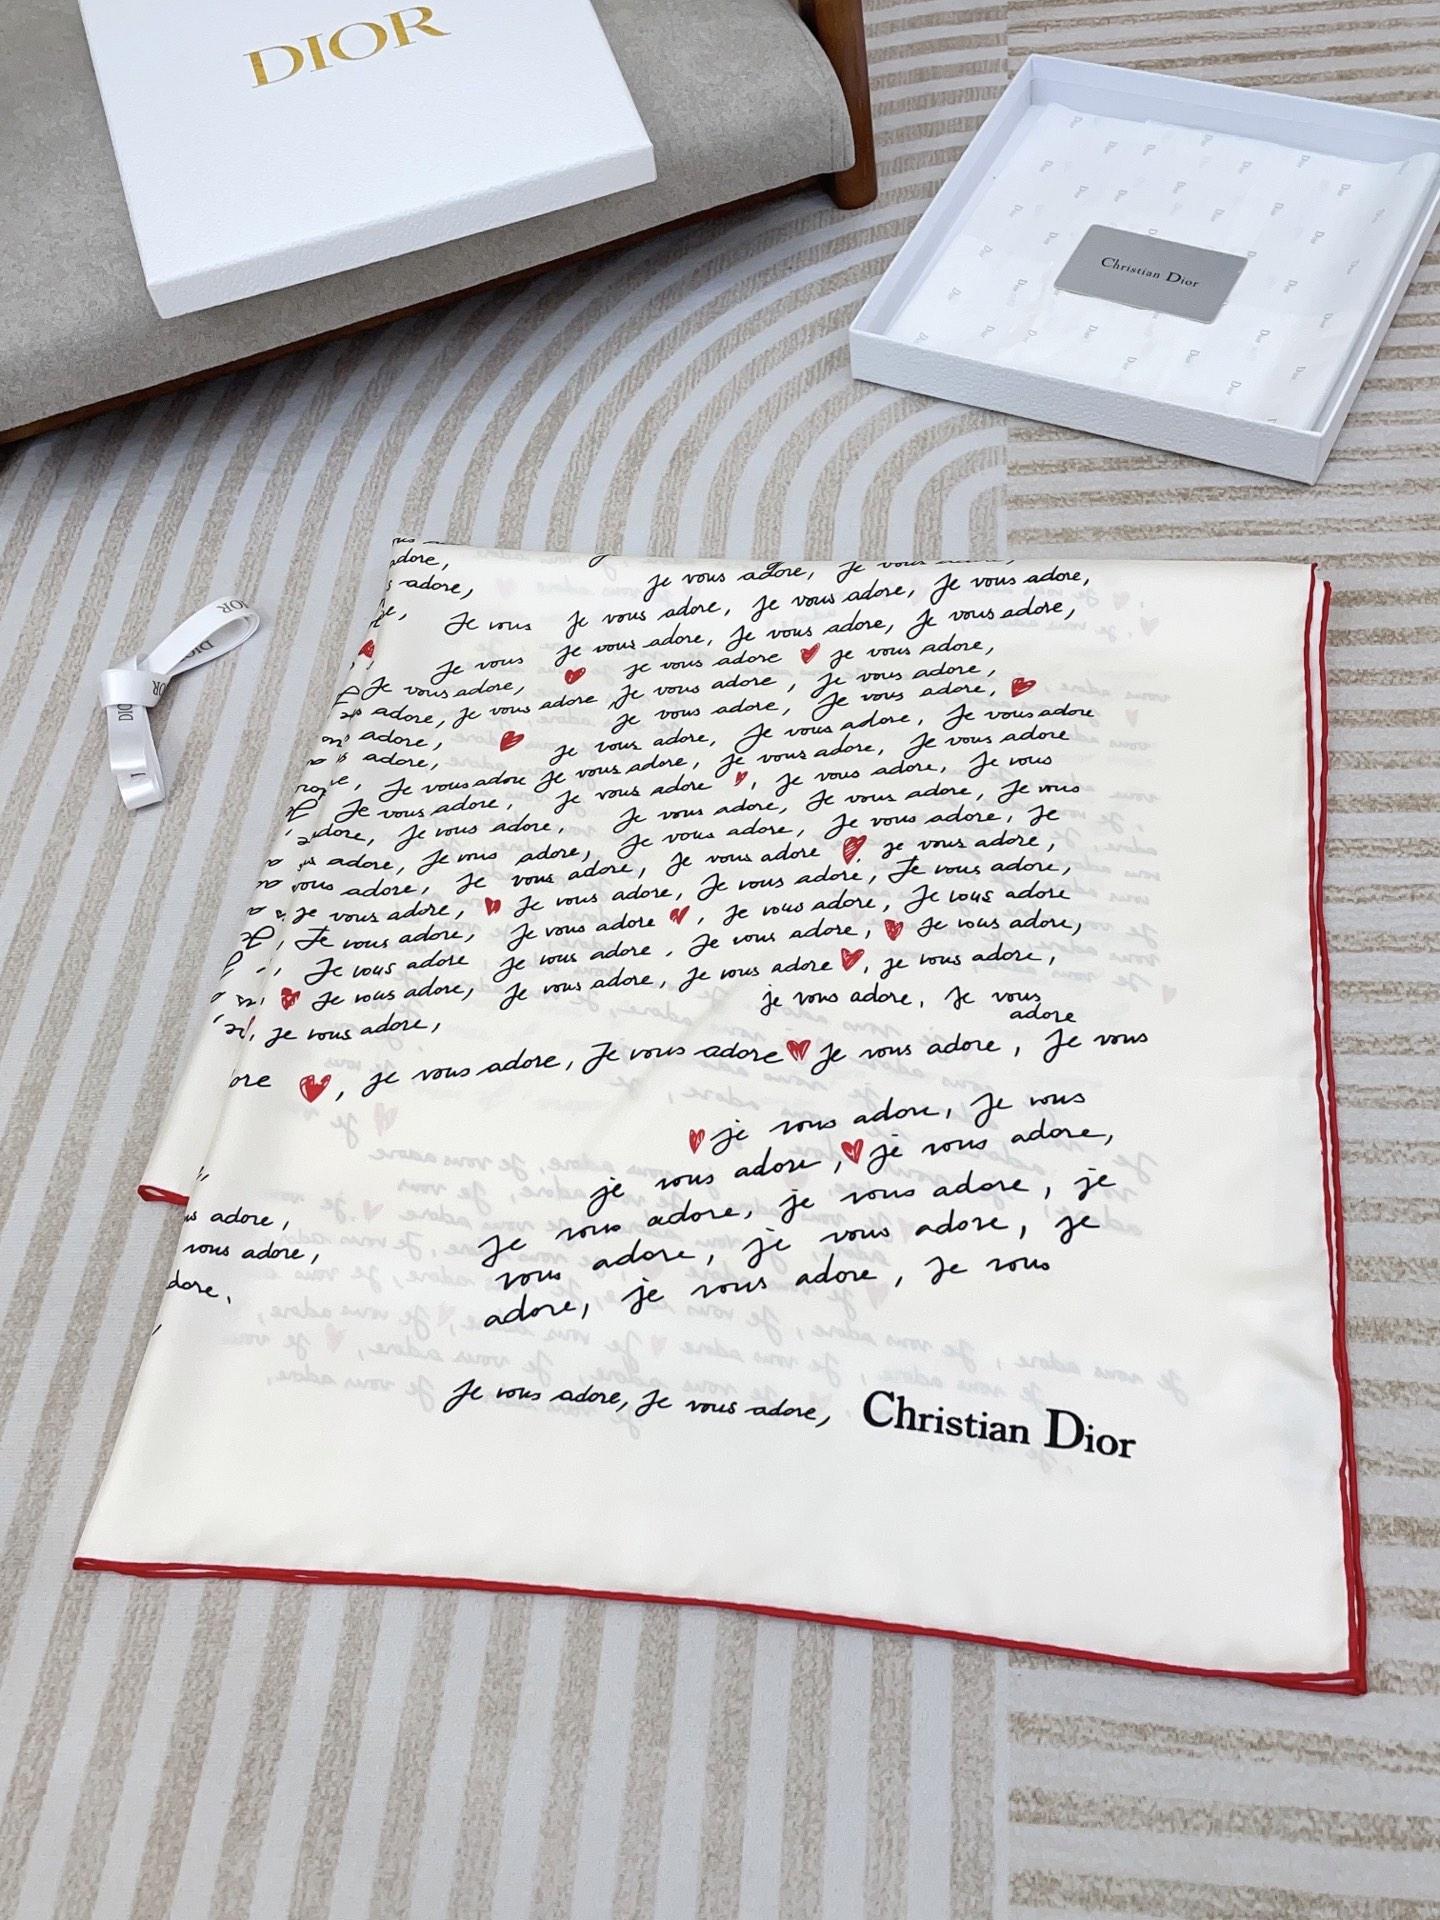 DIOR
Christian Dior
DIOR
adore,
adore,
je vous adore, Je vous adore,
Je vous Je vous adore, Je vous adore, Je vous adore,
Je vous Je vous adore, Je vous adore, Je vous adore,
Je vous adore, je vous adore je vous adore,
adore, Je vous adore Je vous adore, Je vous adore,
adore, Je vous adore, Je vous adore,
adore, je vous adore, Je vous adore, Je vous adore
Je vous adore Je vous adore, Je vous adore, Je vous adore
Je vous adore, Je vous adore, Je vous adore, Je vous
adore, Je vous adore, Je vous adore, Je vous adore, Je vous
adore, Je vous adore, Je vous adore, Je vous adore, Je
vous adore, Je vous adore, Je vous adore, je vous adore,
je vous adore, Je vous adore, Je vous adore, Je vous adore,
Je vous adore, Je vous adore, Je vous adore, Je vous adore
Je vous adore Je vous adore, Je vous adore, Je vous adore,
Je vous adore, Je vous adore, Je vous adore, je vous adore,
je vous adore, je vous adore, Je vous
adore
ore, je vous adore, Je vous adore Je vous adore, Je vous
je vous adore, Je vous
je vous adore, je vous adore,
Je vous adore, je vous adore, je
vous adore, je vous adore, je
adore, je vous adore, Je vous
adore,
vous adore,
dore,
Je vous adore, Je vous adore, Christian Dior